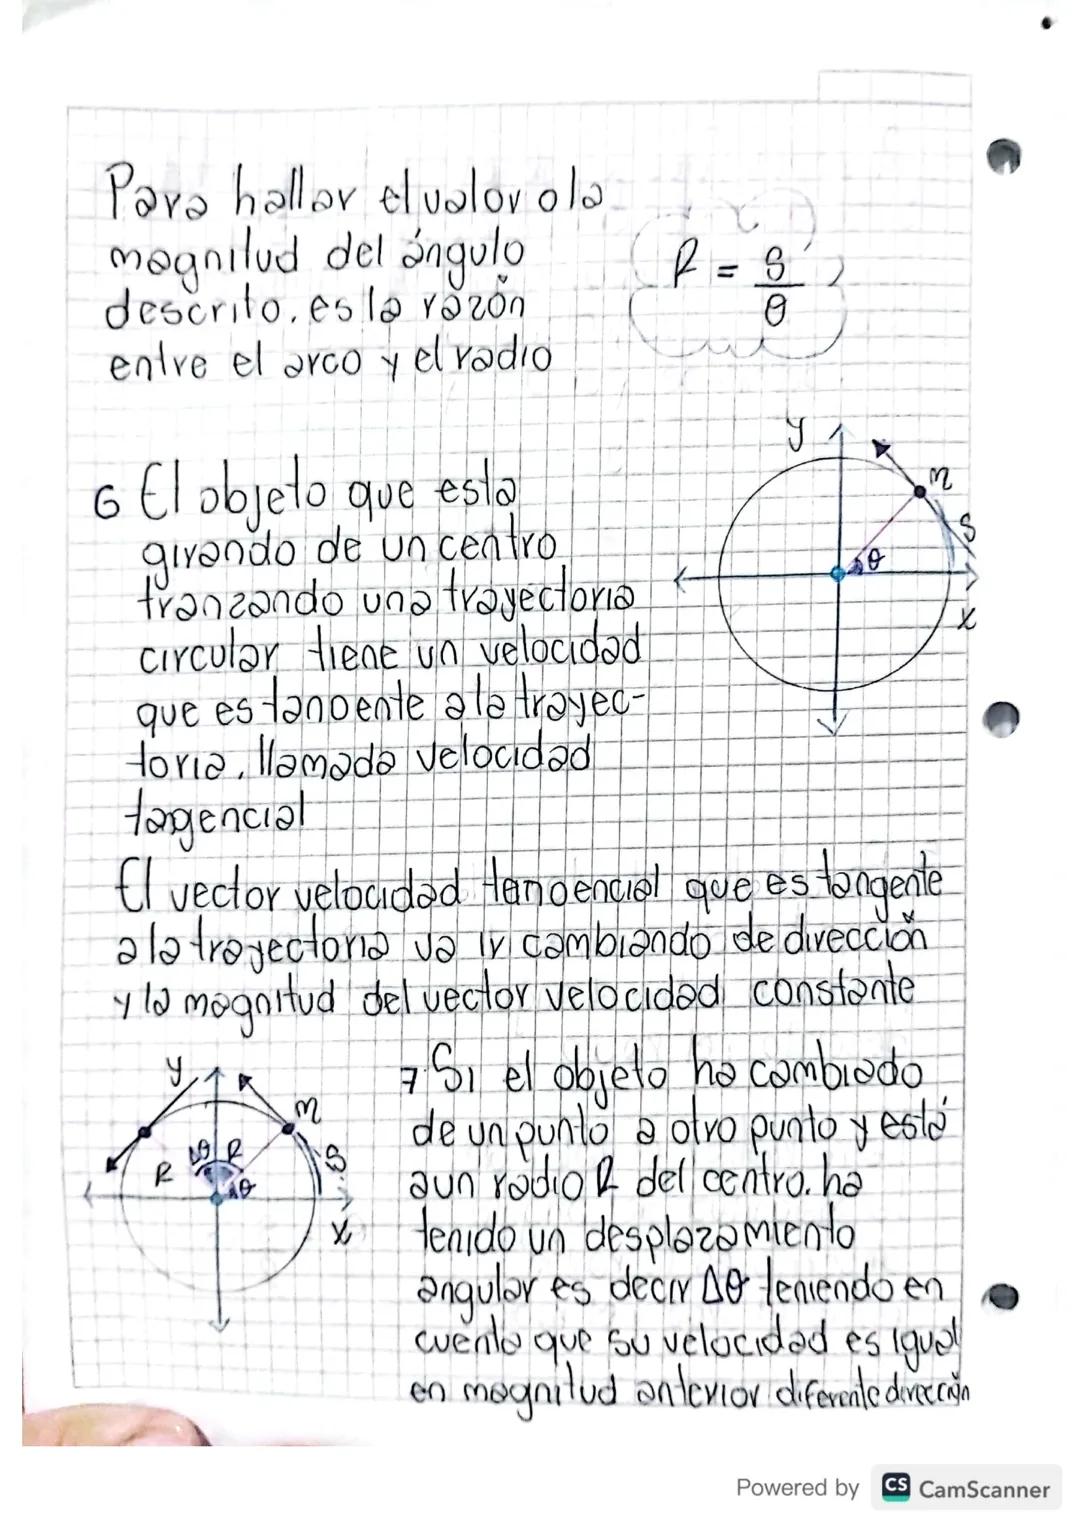 Para hallar el valor o la
magnitud del ángulo
descrito. es la razón
entre el arco y el radio
R = S / θ
6 El objeto que esta
girando de un centro
tranzando una trayectoria
circular tiene un velocidad
que es tangente a la trayec-
toria. llamada velocidad
tagencial
y
m
S
θ
x
El vector velocidad tangencial que es tangente
a la trayectoria va ir cambiando de dirección
y la magnitud del vector velocidad constante
y
m
Δθ R
R
S
θ
x
7. Si el objeto ha cambiado
de un punto a otro punto y está
a un radio R del centro. ha
tenido un desplazamiento
angular es decir Δθ teniendo en
cuenta que su velocidad es igual
en magnitud anterior diferente dirección
Powered by CS CamScanner